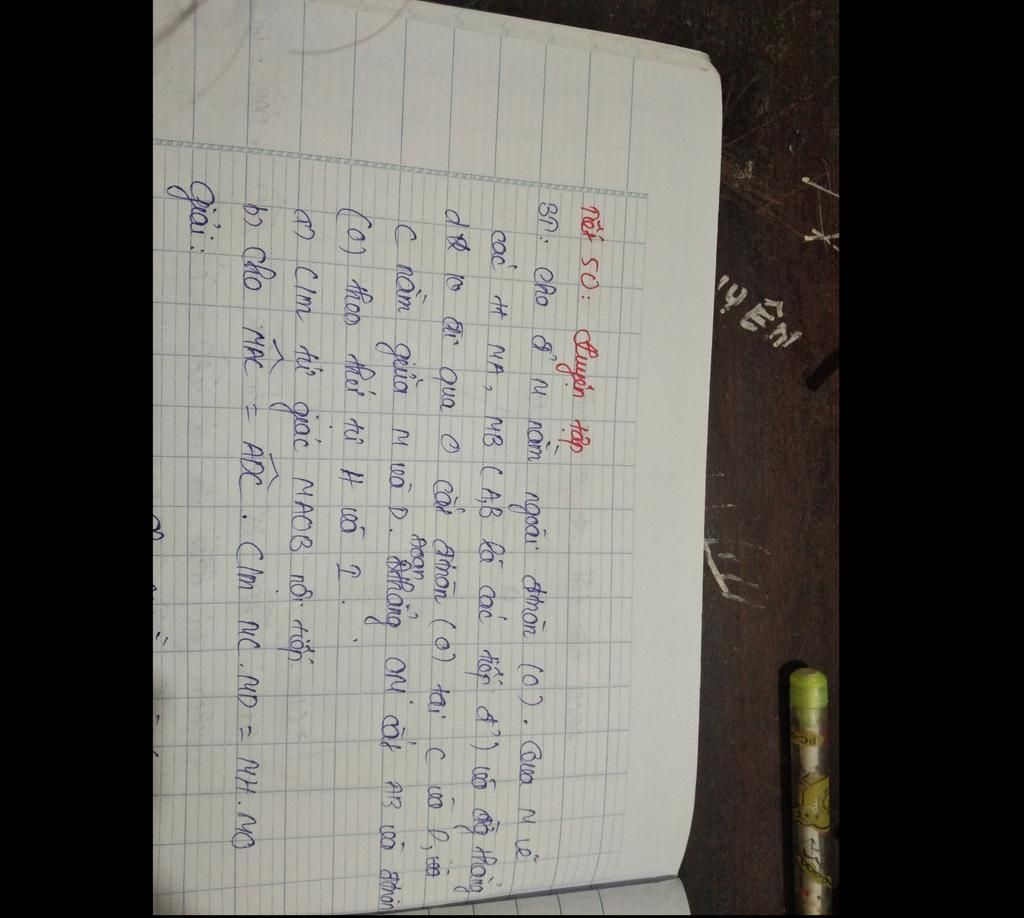 Tiết 50: Luyện tập
BT: Cho đ' M nằm ngoài đtròn (O). Qua M vẽ
các tt MA, MB (A,B là các tiếp đ') và đg thẳng
d ko đi qua O cắt đtròn (O) tại C và D,
C nằm giữa M và D. Đoạn thẳng OM cắt AB và đtròn
(O) theo thứ tự H và I.
a) C/m tứ giác MAOB nội tiếp
b) Cho MAC = ADC. C/m MC.MD = MH.MO
Giải:
UYÊN